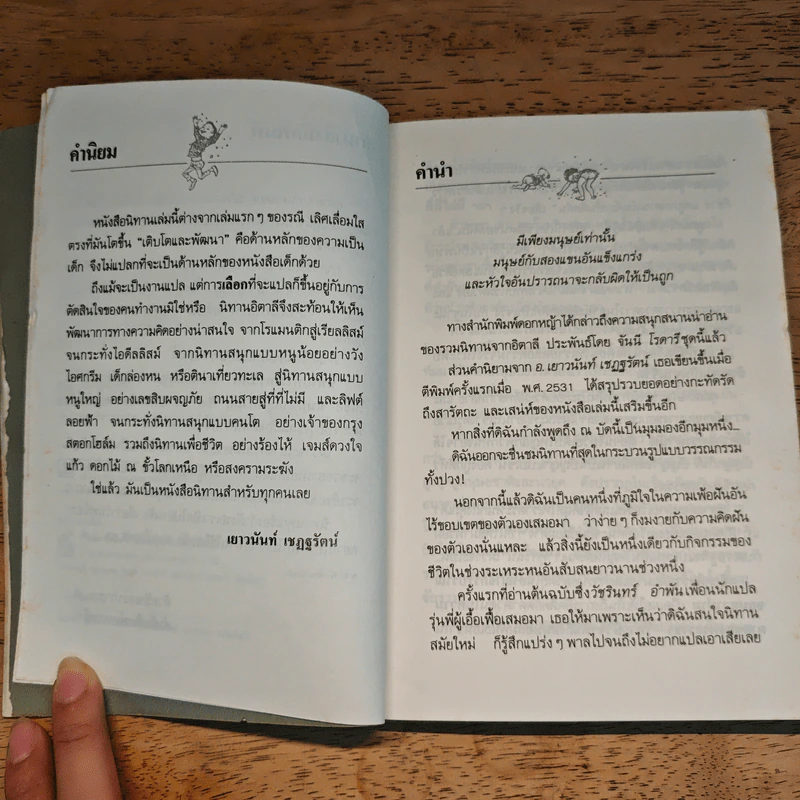 คำนิยม
หนังสือนิทานเล่มนี้ต่างจากเล่มแรก ๆ ของรณี เลิศเลื่อมใส
ตรงที่มันโตขึ้น "เติบโตและพัฒนา" คือด้านหลักของความเป็น
เด็ก จึงไม่แปลกที่จะเป็นด้านหลักของหนังสือเด็กด้วย
ถึงแม้จะเป็นงานแปล แต่การเลือกที่จะแปลก็ขึ้นอยู่กับการ
ตัดสินใจของคนทำงานมิใช่หรือ นิทานอิตาลีจึงสะท้อนให้เห็น
พัฒนาการทางความคิดอย่างน่าสนใจ จากโรแมนติกสู่เรียลลิสม์
จนกระทั่งไอดีลลิสม์ จากนิทานสนุกแบบหนูน้อยอย่างวัง
ไอศกรีม เด็กล่องหน หรือตินาเที่ยวทะเล สู่นิทานสนุกแบบ
หนูใหญ่ อย่างเลขสิบผจญภัย ถนนสายสู่ที่ที่ไม่มี และลิฟต์
ลอยฟ้า จนกระทั่งนิทานสนุกแบบคนโต อย่างเจ้าของกรุง
สตอกโฮล์ม รวมถึงนิทานเพื่อชีวิต อย่างร้องไห้ เจมส์ดวงใจ
แก้ว ดอกไม้ ณ ขั้วโลกเหนือ หรือสงครามระฆัง
ใช่แล้ว มันเป็นหนังสือนิทานสำหรับทุกคนเลย
เยาวนันท์ เชฏฐรัตน์
คำนำ
มีเพียงมนุษย์เท่านั้น
มนุษย์กับสองแขนอันแข็งแกร่ง
และหัวใจอันปรารถนาจะกลับผิดให้เป็นถูก
ทางสำนักพิมพ์ดอกหญ้าได้กล่าวถึงความสนุกสนานน่าอ่าน
ของรวมนิทานจากอิตาลี ประพันธ์โดย จันนี โรดารีชุดนี้แล้ว
ส่วนคำนิยมจาก อ. เยาวนันท์ เชฏฐรัตน์ เธอเขียนขึ้นเมื่อ
ตีพิมพ์ครั้งแรกเมื่อ พ.ศ. 2531 ได้สรุปรวบยอดอย่างกะทัดรัด
ถึงสารัตถะ และเสน่ห์ของหนังสือเล่มนี้เสริมขึ้นอีก
หากสิ่งที่ดิฉันกำลังพูดถึง ณ บัดนี้เป็นมุมมองอีกมุมหนึ่ง...
ดิฉันออกจะชื่นชมนิทานที่สุดในกระบวนรูปแบบวรรณกรรม
ทั้งปวง!
นอกจากนี้แล้วดิฉันเป็นคนหนึ่งที่ภูมิใจในความเพ้อฝันอัน
ไร้ขอบเขตของตัวเองเสมอมา ว่าง่าย ๆ ก็งมงายกับความคิดฝัน
ของตัวเองนั่นแหละ แล้วสิ่งนี้ยังเป็นหนึ่งเดียวกับกิจกรรมของ
ชีวิตในช่วงระเหระหนอันสับสนยาวนานช่วงหนึ่ง
ครั้งแรกที่อ่านต้นฉบับซึ่งวัชรินทร์ อำพัน เพื่อนนักแปล
รุ่นพี่ผู้เอื้อเฟื้อเสมอมา เธอให้มาเพราะเห็นว่าดิฉันสนใจนิทาน
สมัยใหม่ ก็รู้สึกแปร่ง ๆ พาลไปจนถึงไม่อยากแปลเอาเสียเลย